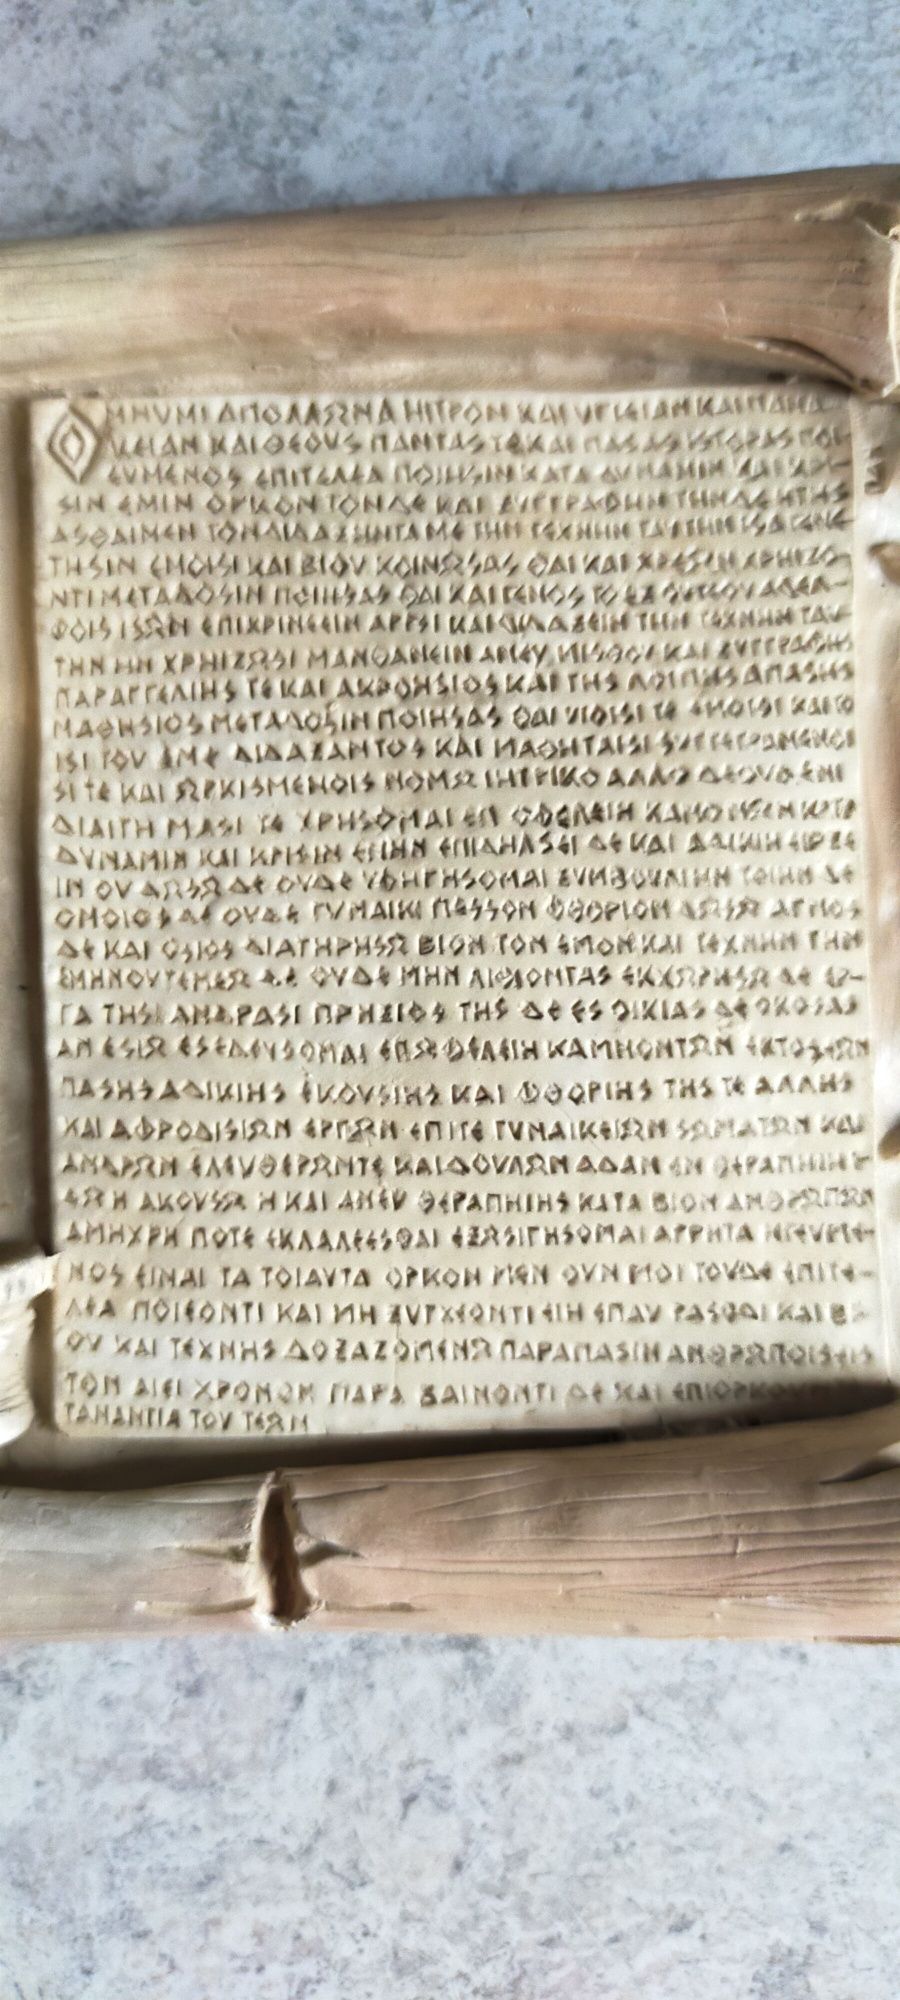 ΟΜΝΥΜΙ ΑΠΟΛΛΩΝΑ ΗΙΤΡΟΝ ΚΑΙ ΥΓΙΕΙΑΝ ΚΑΙ ΠΑΝΑ
ΚΕΙΑΝ ΚΑΙ ΘΕΟΥΣ ΠΑΝΤΑΣ ΤΕ ΚΑΙ ΠΑΣΑΣ ΙΣΤΟΡΑΣ ΠΟΙ-
ΕΥΜΕΝΟΣ ΕΠΙΤΕΛΕΑ ΠΟΙΗΣΙΝ ΚΑΤΑ ΔΥΝΑΜΙΝ ΚΑΙ ΚΡΙ-
ΣΙΝ ΕΜΙΝ ΟΡΚΟΝ ΤΟΝΔΕ ΚΑΙ ΞΥΓΓΡΑΦΗΝ ΤΗΝΔΕ
ΜΕΝ ΤΟΝ ΔΙΔΑΞΑΝΤΑ ΜΕ ΤΗΝ ΤΕΧΝΗΝ ΤΑΥΤΗΝ
ΤΗΣΙΝ ΕΜΟΙΣΙ ΚΑΙ ΒΙΟΥ ΚΟΙΝΩΣΑΣΘΑΙ ΚΑΙ ΧΡΕΩΝ ΧΡΗΙΖΟ-
ΝΤΙ ΜΕΤΑΔΟΣΙΝ ΠΟΙΗΣΑΣΘΑΙ ΚΑΙ ΓΕΝΟΣ ΤΟ ΕΞ ΟΥΤΕΟΥ ΑΔΕΛ-
ΦΟΙΣ ΙΣΩΝ ΕΠΙΧΡΙΝΕΕΙΝ ΑΡΡΣΙ ΚΑΙ ΤΗΝ ΤΕΧΝΗΝ ΤΑΥ-
ΤΗΝ ΗΝ ΧΡΗΙΖΩΣΙ ΜΑΝΘΑΝΕΙΝ ΑΝΕΥ ΜΙΣΘΟΥ ΚΑΙ ΞΥΓΓΡΑΦΗΣ
ΠΑΡΑΓΓΕΛΙΗΣ ΤΕ ΚΑΙ ΑΚΡΟΗΣΙΟΣ ΚΑΙ ΤΗΣ ΛΟΙΠΗΣ ΑΠΑΣΗΣ
ΜΑΘΗΣΙΟΣ ΜΕΤΑΔΟΣΙΝ ΠΟΙΗΣΑΣΘΑΙ ΥΙΟΙΣΙ ΤΕ ΕΜΟΙΣΙ ΚΑΙ ΤΟ
ΙΣΙ ΤΟΥ ΕΜΕ ΔΙΔΑΞΑΝΤΟΣ ΚΑΙ ΜΑΘΗΤΑΙΣΙ ΣΥΓΓΕΓΡΑΜΕΝΟΙ
ΣΙ ΤΕ ΚΑΙ ΩΡΚΙΣΜΕΝΟΙΣ ΝΟΜΩ ΙΗΤΡΙΚΟ ΑΛΛΩ ΔΕ ΟΥΔΕΝΙ
ΔΙΑΙΤΗΜΑΣΙ ΤΕ ΧΡΗΣΟΜΑΙ ΕΠ ΩΦΕΛΕΙΗ ΚΑΜΝΟΝΤΩΝ ΚΑΤΑ
ΔΥΝΑΜΙΝ ΚΑΙ ΚΡΙΣΙΝ ΕΜΗΝ ΕΠΙ ΔΗΛΗΣΕΙ ΔΕ ΚΑΙ ΑΔΙΚΙΗ ΕΙΡΞΕ
ΙΝ ΟΥ ΔΩΣΩ ΔΕ ΟΥΔΕ ΥΦΗΓΗΣΟΜΑΙ ΞΥΜΒΟΥΛΙΗΝ ΤΟΙΗΝ ΔΕ
ΟΜΟΙΟΣ ΔΕ ΟΥΔΕ ΓΥΝΑΙΚΙ ΠΕΣΣΟΝ ΦΘΟΡΙΟΝ ΔΩΣΩ ΑΓΝΟΣ
ΔΕ ΚΑΙ ΟΣΙΟΣ ΔΙΑΤΗΡΗΣΩ ΒΙΟΝ ΤΟΝ ΕΜΟΝ ΚΑΙ ΤΕΧΝΗΝ ΤΗΝ
ΕΜΗΝ ΟΥ ΤΕΜΕΩ ΔΕ ΟΥΔΕ ΜΗΝ ΛΙΘΙΟΝΤΑΣ ΕΚΧΩΡΗΣΩ ΔΕ ΕΡ-
ΓΑΤΗΣΙ ΑΝΔΡΑΣΙ ΠΡΗΞΙΟΣ ΤΗΣ ΔΕ ΕΣ ΟΙΚΙΑΣ ΔΕ ΟΚΟΣΑΣ
ΑΝ ΕΣΙΩ ΕΣΕΛΕΥΣΟΜΑΙ ΕΠ ΩΦΕΛΕΙΗ ΚΑΜΝΟΝΤΩΝ ΕΚΤΟΣ ΕΩΝ
ΠΑΣΗΣ ΑΔΙΚΙΗΣ ΕΚΟΥΣΙΗΣ ΚΑΙ ΦΘΟΡΙΗΣ ΤΗΣ ΤΕ ΑΛΛΗΣ
ΚΑΙ ΑΦΡΟΔΙΣΙΩΝ ΕΡΓΩΝ ΕΠΙ ΤΕ ΓΥΝΑΙΚΕΙΩΝ ΣΩΜΑΤΩΝ ΚΑΙ
ΑΝΔΡΩΝ ΕΛΕΥΘΕΡΩΝ ΤΕ ΚΑΙ ΔΟΥΛΩΝ Α Δ ΑΝ ΕΝ ΘΕΡΑΠΗΙΗ
ΑΚΟΥΣΩ Η ΚΑΙ ΑΝΕΥ ΘΕΡΑΠΗΙΗΣ ΚΑΤΑ ΒΙΟΝ ΑΝΘΡΩΠΩΝ
Α ΜΗ ΧΡΗ ΠΟΤΕ ΕΚΛΑΛΕΕΣΘΑΙ ΕΞΩ ΣΙΓΗΣΟΜΑΙ ΑΡΡΗΤΑ ΗΓΕΥΜΕ-
ΝΟΣ ΕΙΝΑΙ ΤΑ ΤΟΙΑΥΤΑ ΟΡΚΟΝ ΜΕΝ ΟΥΝ ΜΟΙ ΤΟΥΔΕ ΕΠΙΤΕ-
ΛΕΑ ΠΟΙΕΟΝΤΙ ΚΑΙ ΜΗ ΞΥΓΧΕΟΝΤΙ ΕΙΗ ΕΠΑΥΡΑΣΘΑΙ ΚΑΙ ΒΙ-
ΟΥ ΚΑΙ ΤΕΧΝΗΣ ΔΟΞΑΖΟΜΕΝΩ ΠΑΡΑ ΠΑΣΙΝ ΑΝΘΡΩΠΟΙΣ ΕΙΣ
ΤΟΝ ΑΙΕΙ ΧΡΟΝΟΝ ΠΑΡΑΒΑΙΝΟΝΤΙ ΔΕ ΚΑΙ ΕΠΙΟΡΚΟΥ
ΤΑΝΑΝΤΙΑ ΤΟΥΤΕΩΝ